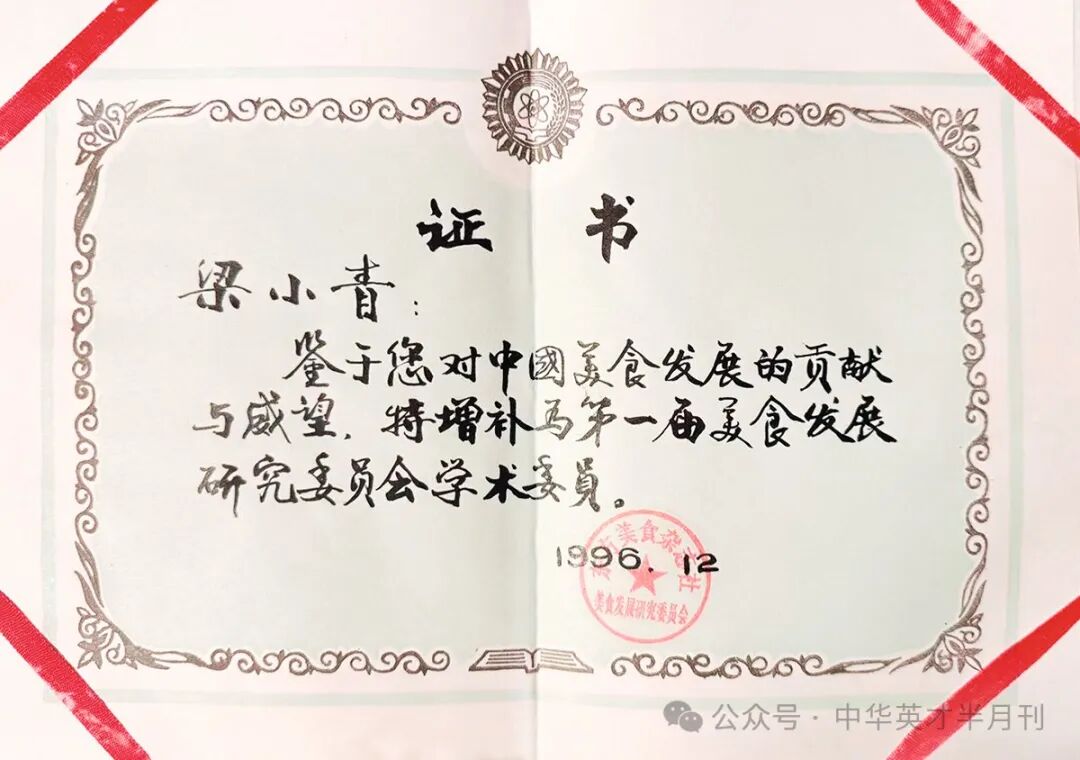 证 书
梁小青：
鉴于您对中國美食发展的贡献
与威望，特增补为第一届美食发展
研究委员会学术委員。
1996.12
美食杂志社
美食发展研究委员会
公众号·中华英才半月刊